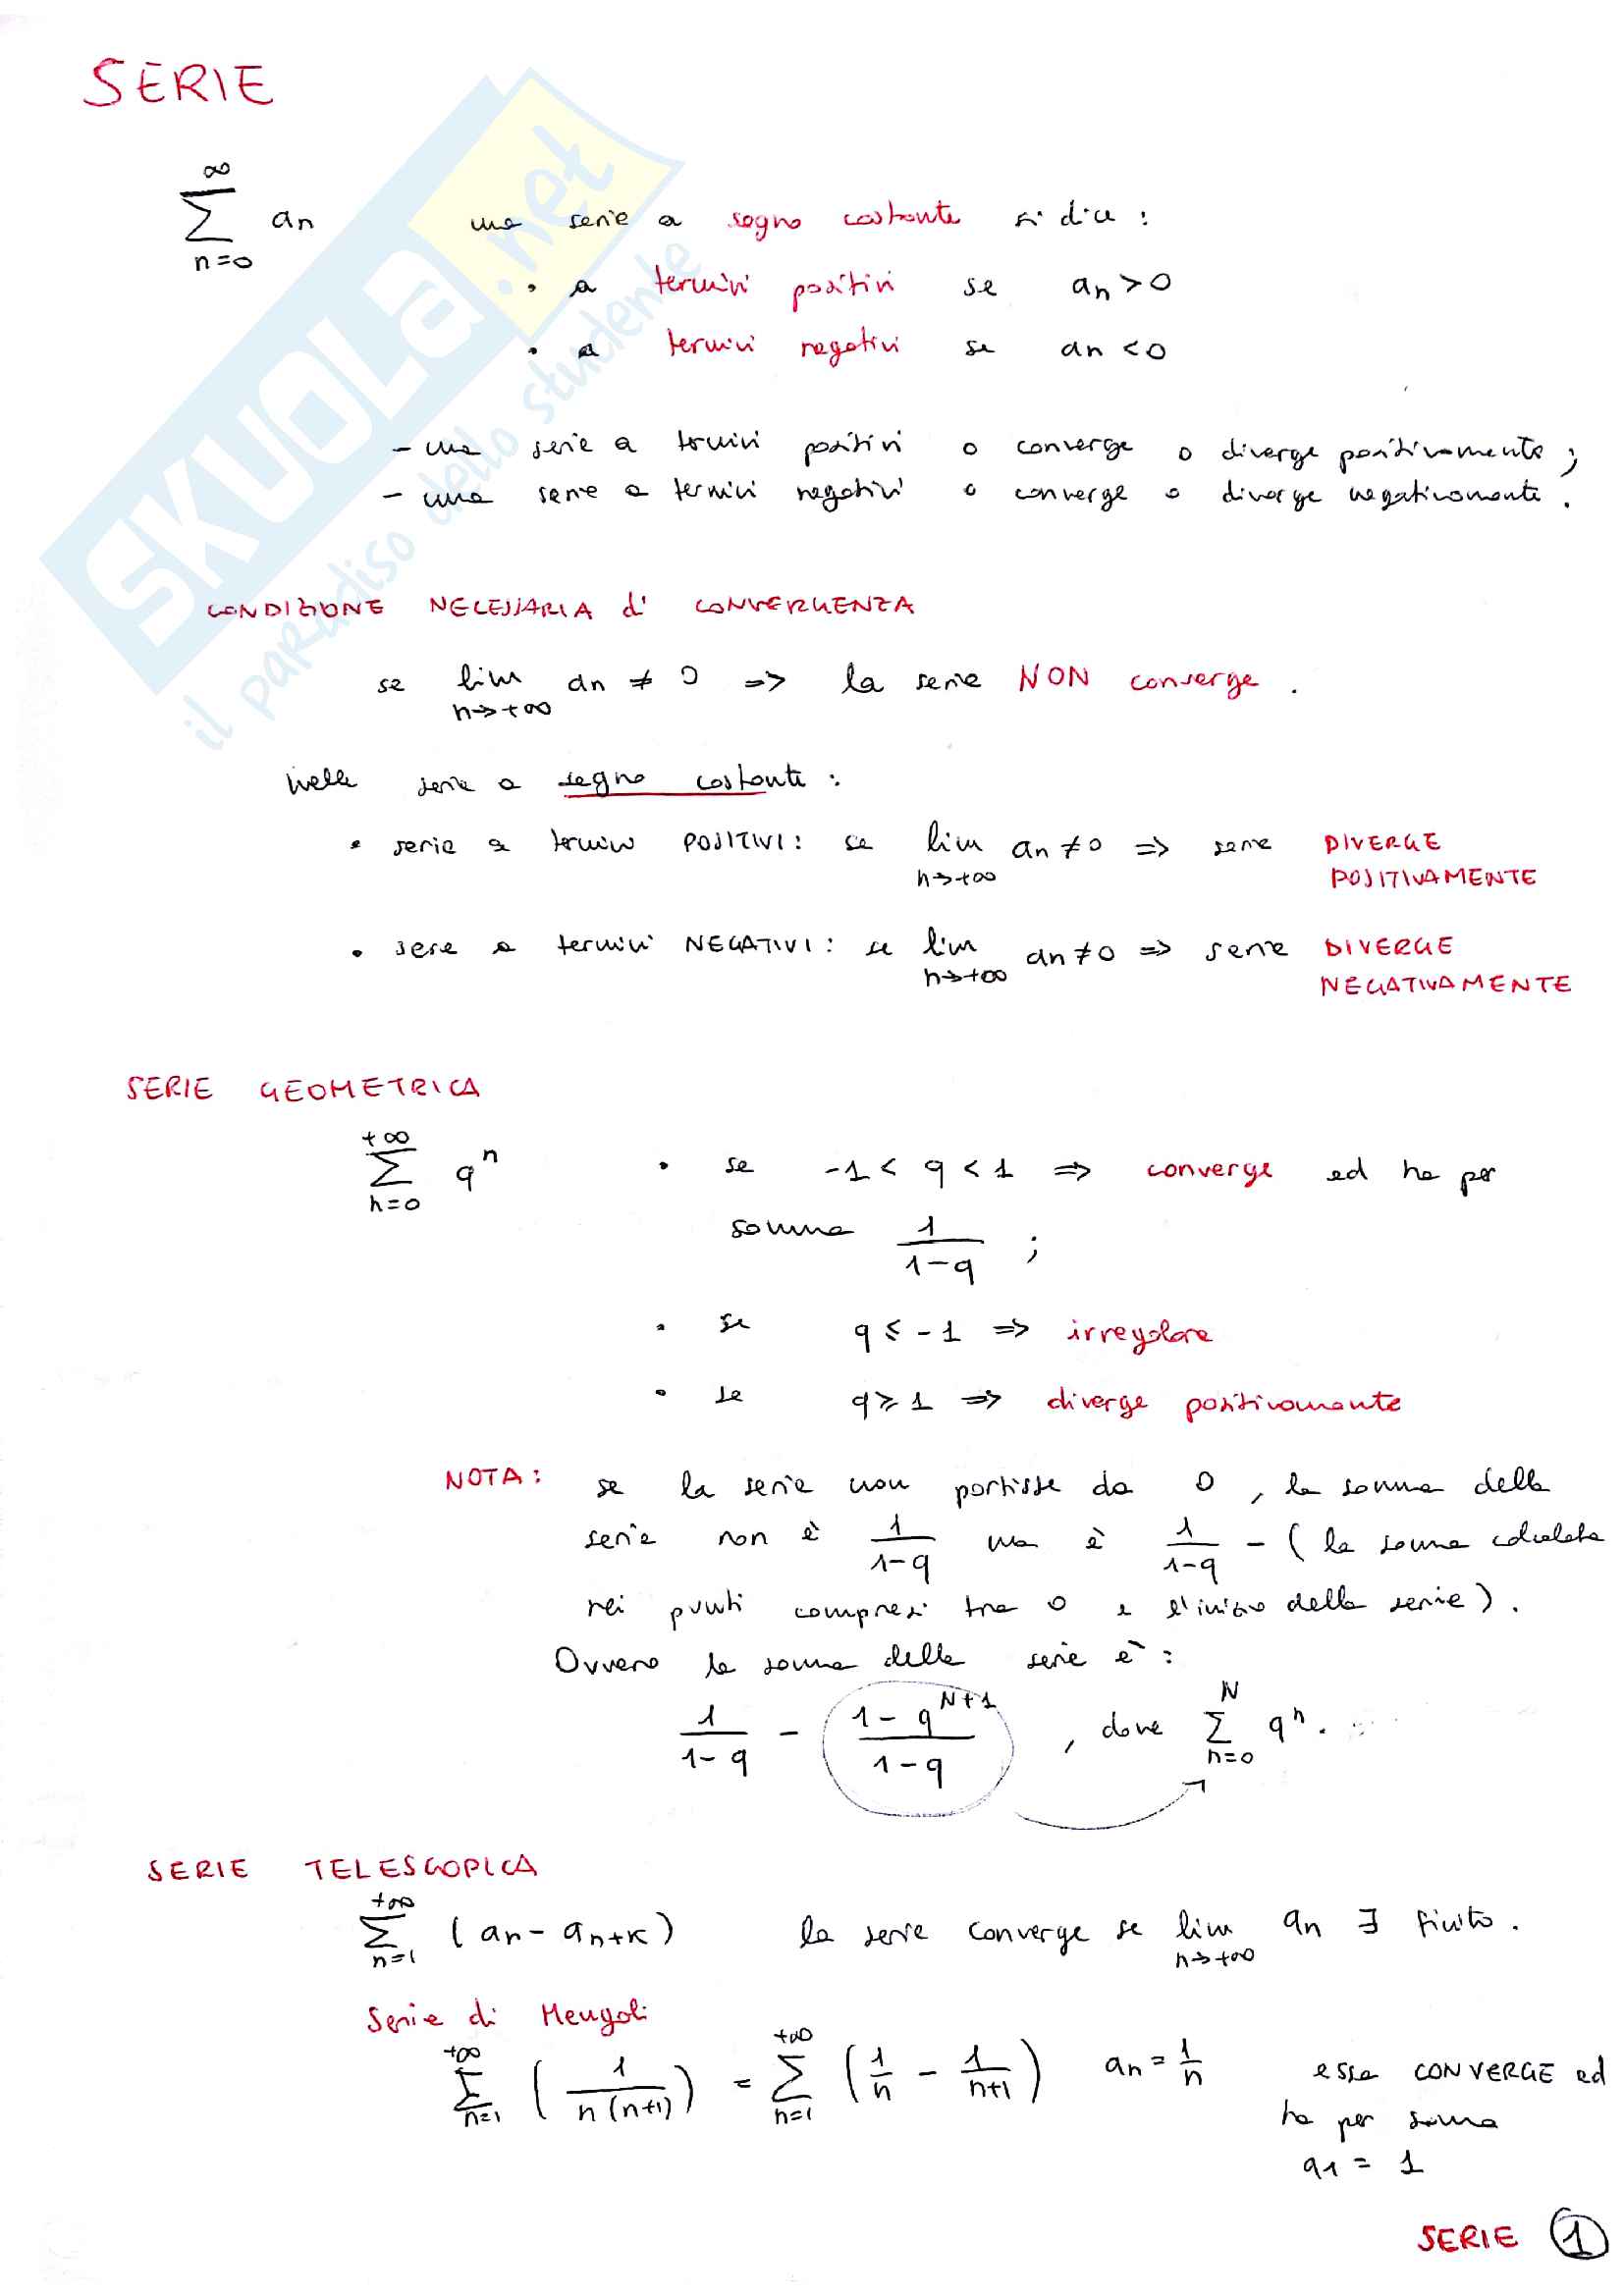 SERIE
∞
∑ an   una serie a segno costante si dice :
n=0
• a termini positivi se an > 0
• a termini negativi se an < 0
- una serie a termini positivi o converge o diverge positivamente ;
- una serie a termini negativi o converge o diverge negativamente .
CONDIZIONE NECESSARIA di CONVERGENZA
se lim an ≠ 0 => la serie NON converge .
n→+∞
nelle serie a segno costante :
• serie a termini POSITIVI : se lim an ≠ 0 => serie DIVERGE
n→+∞ POSITIVAMENTE
• serie a termini NEGATIVI : se lim an ≠ 0 => serie DIVERGE
n→+∞ NEGATIVAMENTE
SERIE GEOMETRICA
+∞
∑ q^n   • se -1 < q < 1 => converge ed ha per
n=0
somma 1/(1-q) ;
• se q ≤ -1 => irregolare
• se q ≥ 1 => diverge positivamente
NOTA : se la serie non partisse da 0 , la somma della
serie non è 1/(1-q) ma è 1/(1-q) - ( la somma calcolata
nei punti compresi tra 0 e l'inizio della serie ) .
Ovvero la somma della serie è :
1/(1-q) - (1-q^(N+1))/(1-q) , dove ∑ n=0 N q^n .
SERIE TELESCOPICA
+∞
∑ ( an - an+k )   la serie converge se lim an ∃ finito .
n=1   n→+∞
Serie di Mengoli
+∞   +∞
∑ ( 1/(n(n+1)) ) = ∑ ( 1/n - 1/(n+1) )   an = 1/n   essa CONVERGE ed
n=1   n=1   ha per somma
a1 = 1
SERIE 1
SKUOLA.net
il paradiso dello studente